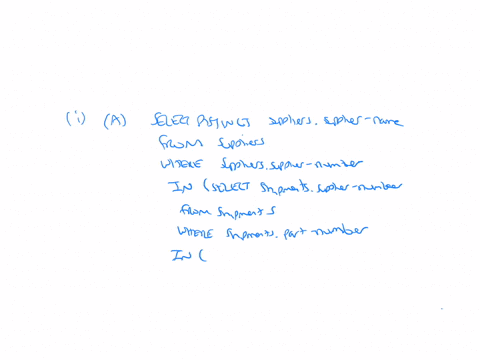 (i) (A) SELECT DISTINCT suppliers.supplier-name
FROM suppliers
WHERE suppliers.supplier-number
IN (SELECT shipments.supplier-number
FROM shipments
WHERE shipments.part-number
IN (